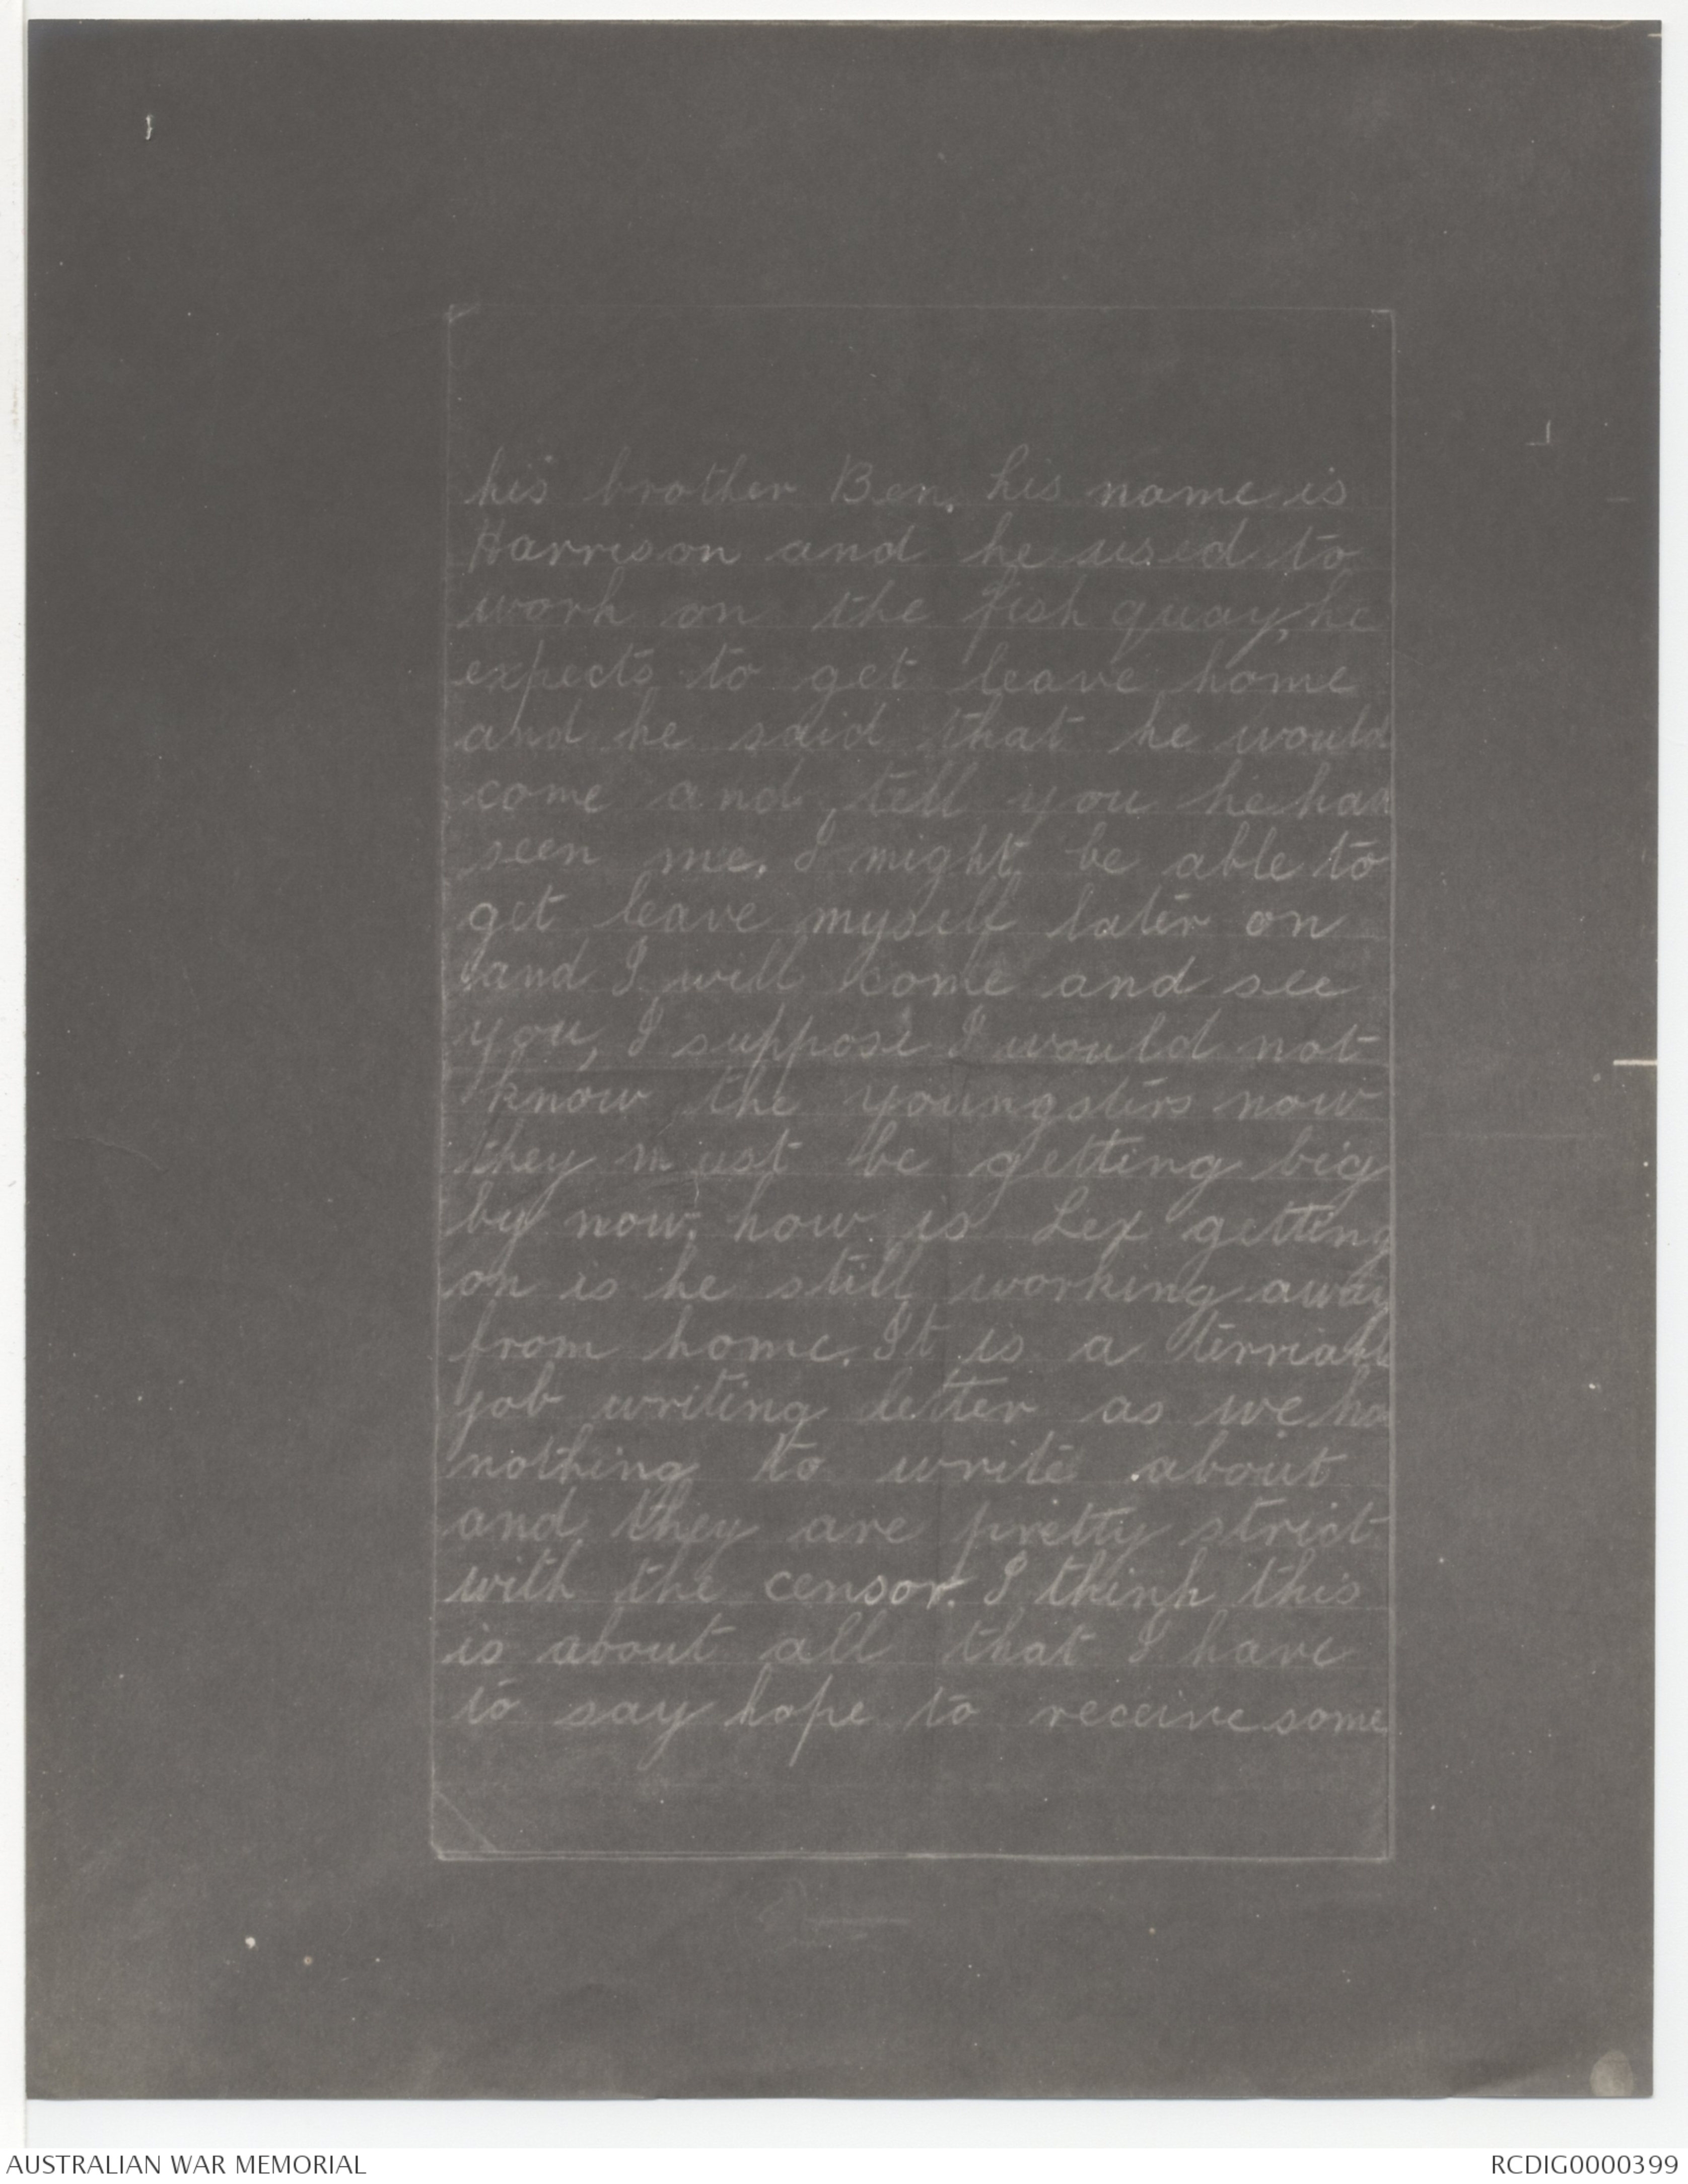 his brother Ben, his name is
Harrison and he used to
work on the fish quay, he
expects to get leave home
and he said that he would
come and tell you he has
seen me. I might be able to
get leave myself later on
and I will come and see
you, I suppose I would not
know the youngsters now
they must be getting big
by now. how is Lex getting
on is he still working away
from home. It is a terriable
job writing letter as we ha
nothing to write about
and they are pretty strict
with the censor. I think this
is about all that I have
to say hope to receive some
AUSTRALIAN WAR MEMORIAL
RCDIG0000399